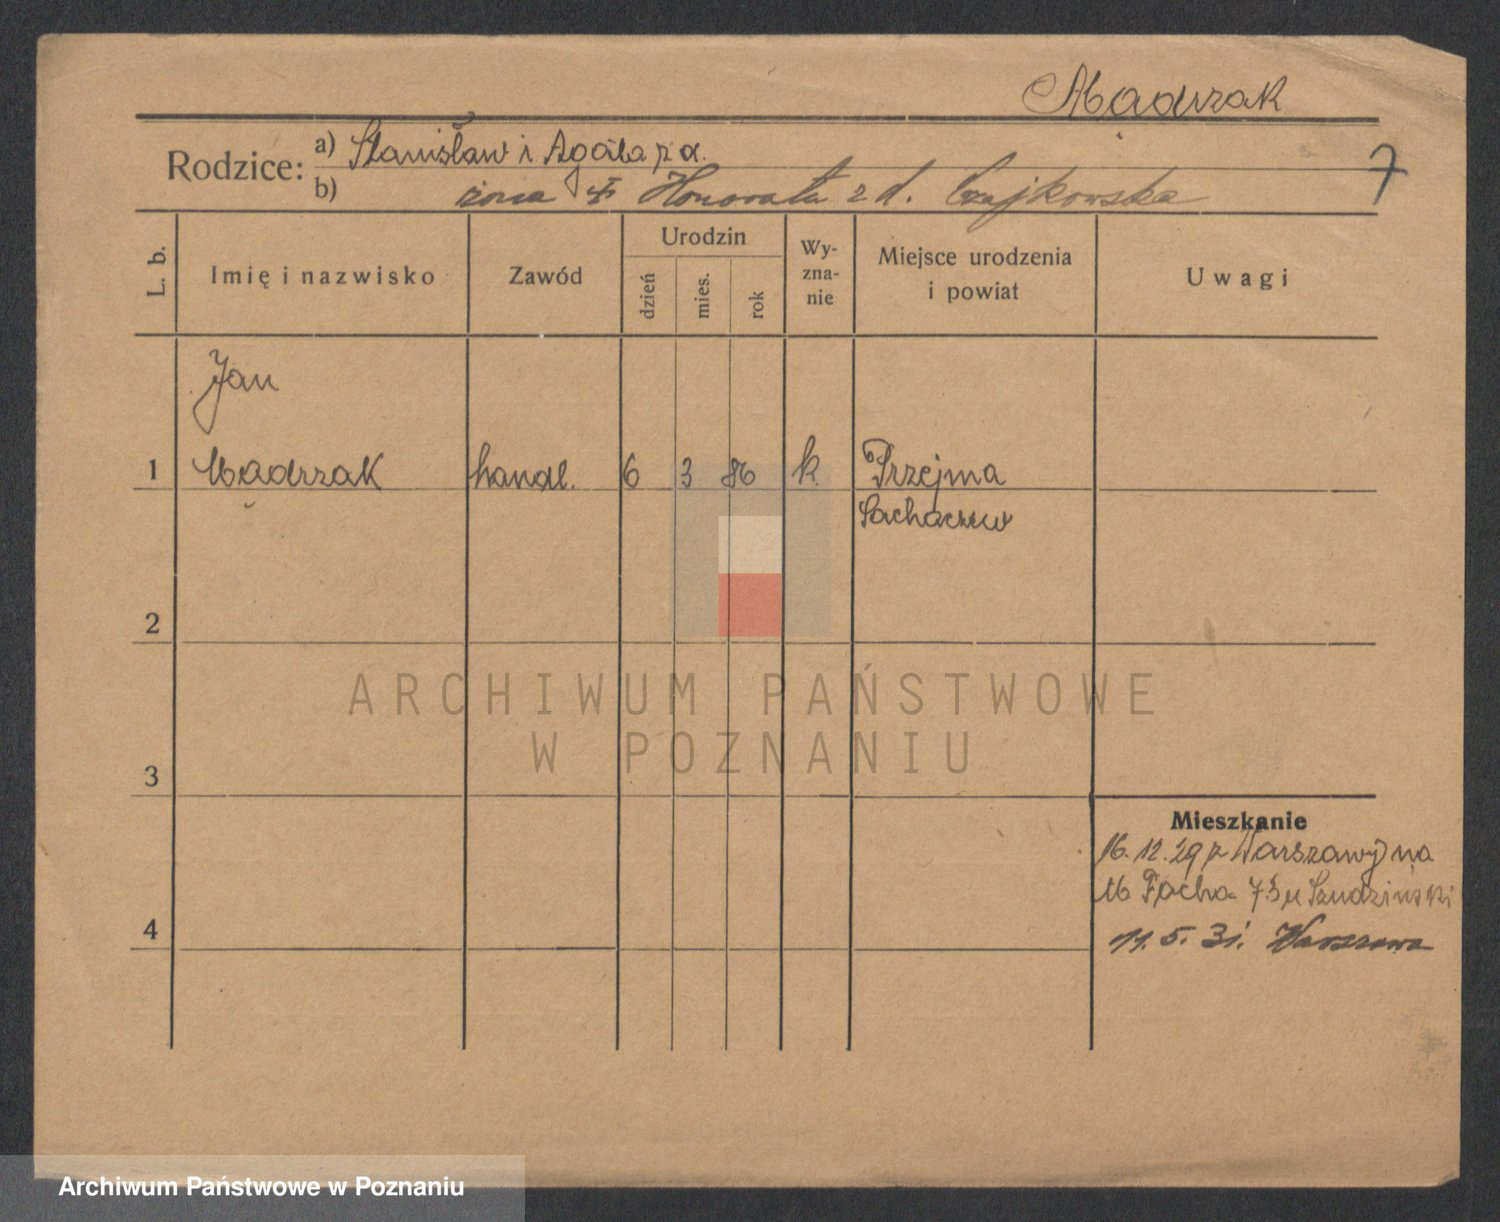 Madrzak
Rodzice: a) Stanisław i Agata z d.
b) żona Honorata z d. Czajkowska
7
L. b.
Imię i nazwisko
Zawód
Urodzin
dzień
mies.
rok
Wy-
zna-
nie
Miejsce urodzenia
i powiat
Uwagi
Jan
1 Madrzak handl. 6 3 86 k. Przejma
Sochaczew
2
3
4
Mieszkanie
16.12.29 z Warszawy na
M. Focha 73 u Szudziński
11.5.31. Warszawa
ARCHIWUM PAŃSTWOWE
W POZNANIU
Archiwum Państwowe w Poznaniu